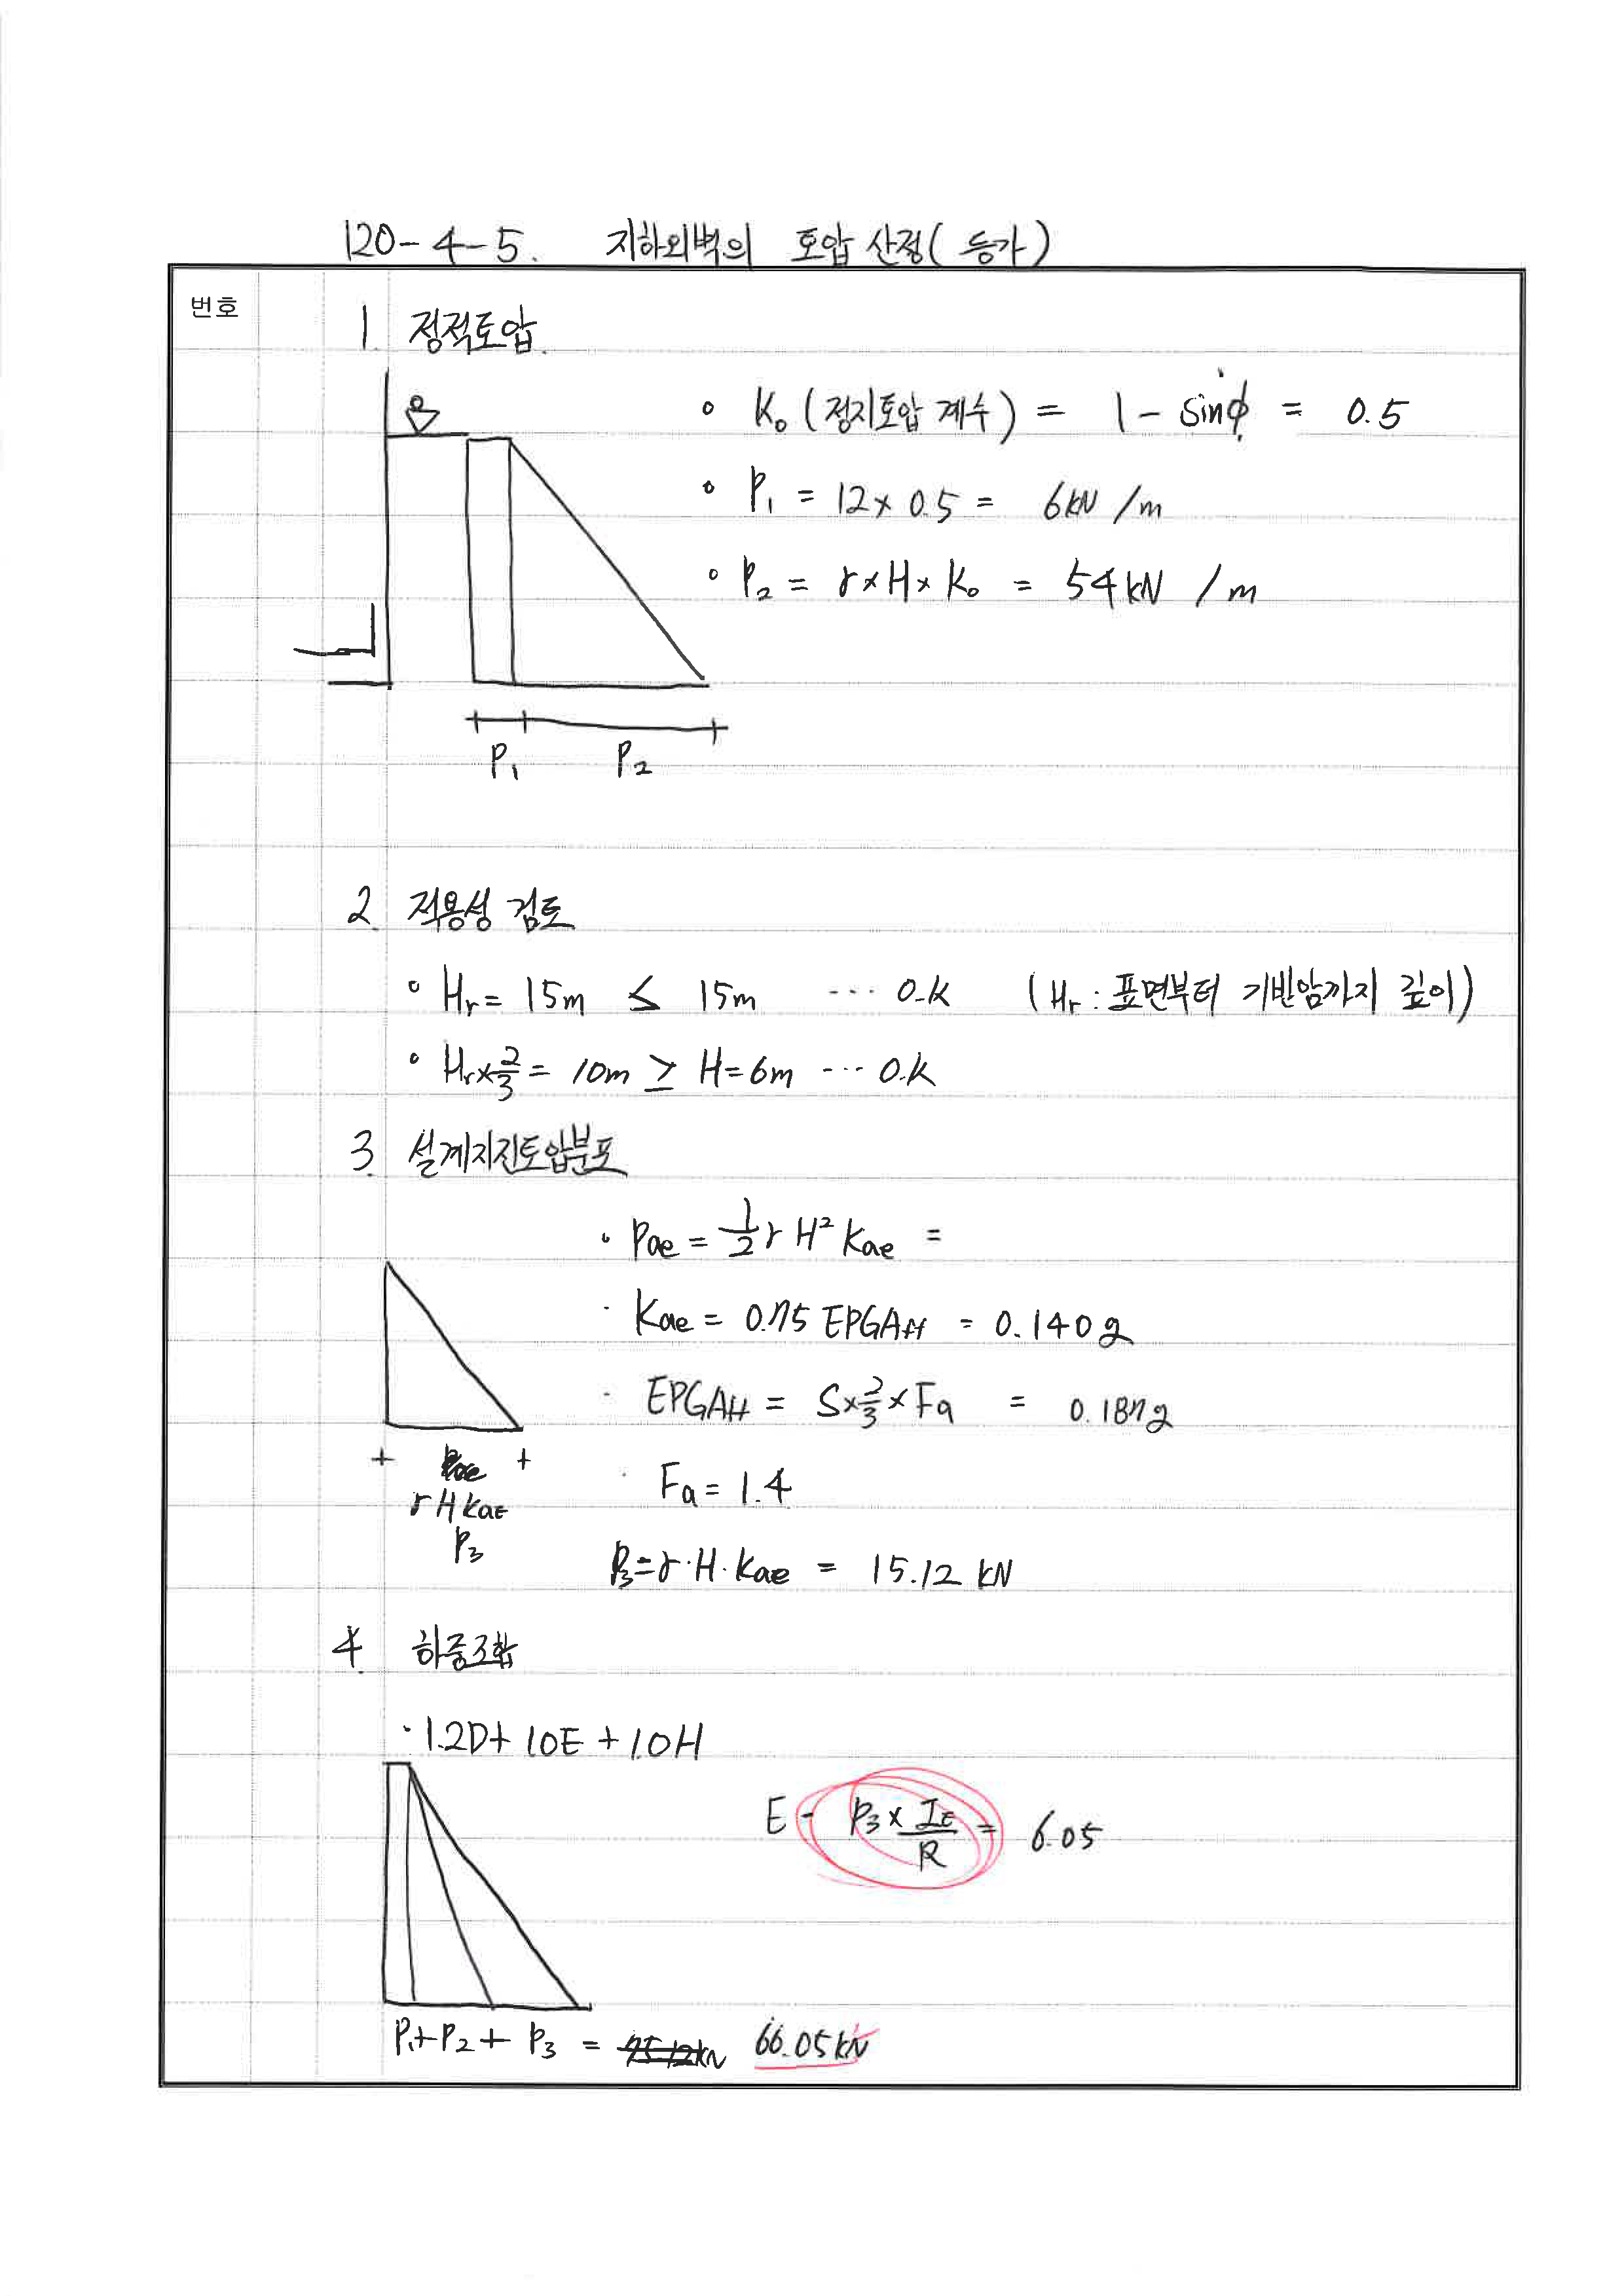 120-4-5. 지하외벽의 토압 산정(등가)
번호
1. 정적토압.
∘ K₀ (정지토압 계수) = 1 - sinϕ = 0.5
∘ P₁ = 12 × 0.5 = 6kN /m
∘ P₂ = r×H×K₀ = 54kN /m
P₁ P₂
2. 적용성 검토
∘ Hr = 15m ≤ 15m ... O.K (Hr : 표면부터 기반암까지 깊이)
∘ Hr×2/3 = 10m ≥ H=6m ... O.K
3. 설계지진토압분포
∘ Pae = 1/2 r H² Kae =
· Kae = 0.75 EPGAff = 0.140g
· EPGAff = S×2/3×Fa = 0.187g
r H KaE
· Fa = 1.4
P₃
P₃=r·H·Kae = 15.12 kN
4. 하중조합
· 1.2D+ 1.0E + 1.0H
E = P₃ × IE/R = 6.05
P₁+P₂+ P₃ = 75.12kN 66.05kN